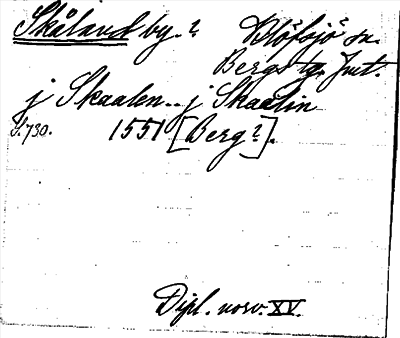 Skåland by.? Klöfsjö sn.
Bergs tg. Jmt.
j Skaalen.. j Skaalin
S. 730. 1551 [Berg?].
Dipl. norv. XV.